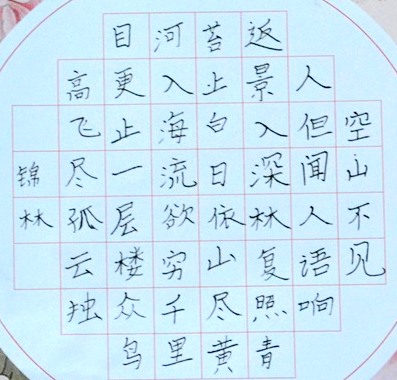 空山不见
人但闻人语响
返景入深林复照青
苔上白日依山尽黄
河入海流欲穷千里
目更上一层楼众鸟
高飞尽孤云独
锦林